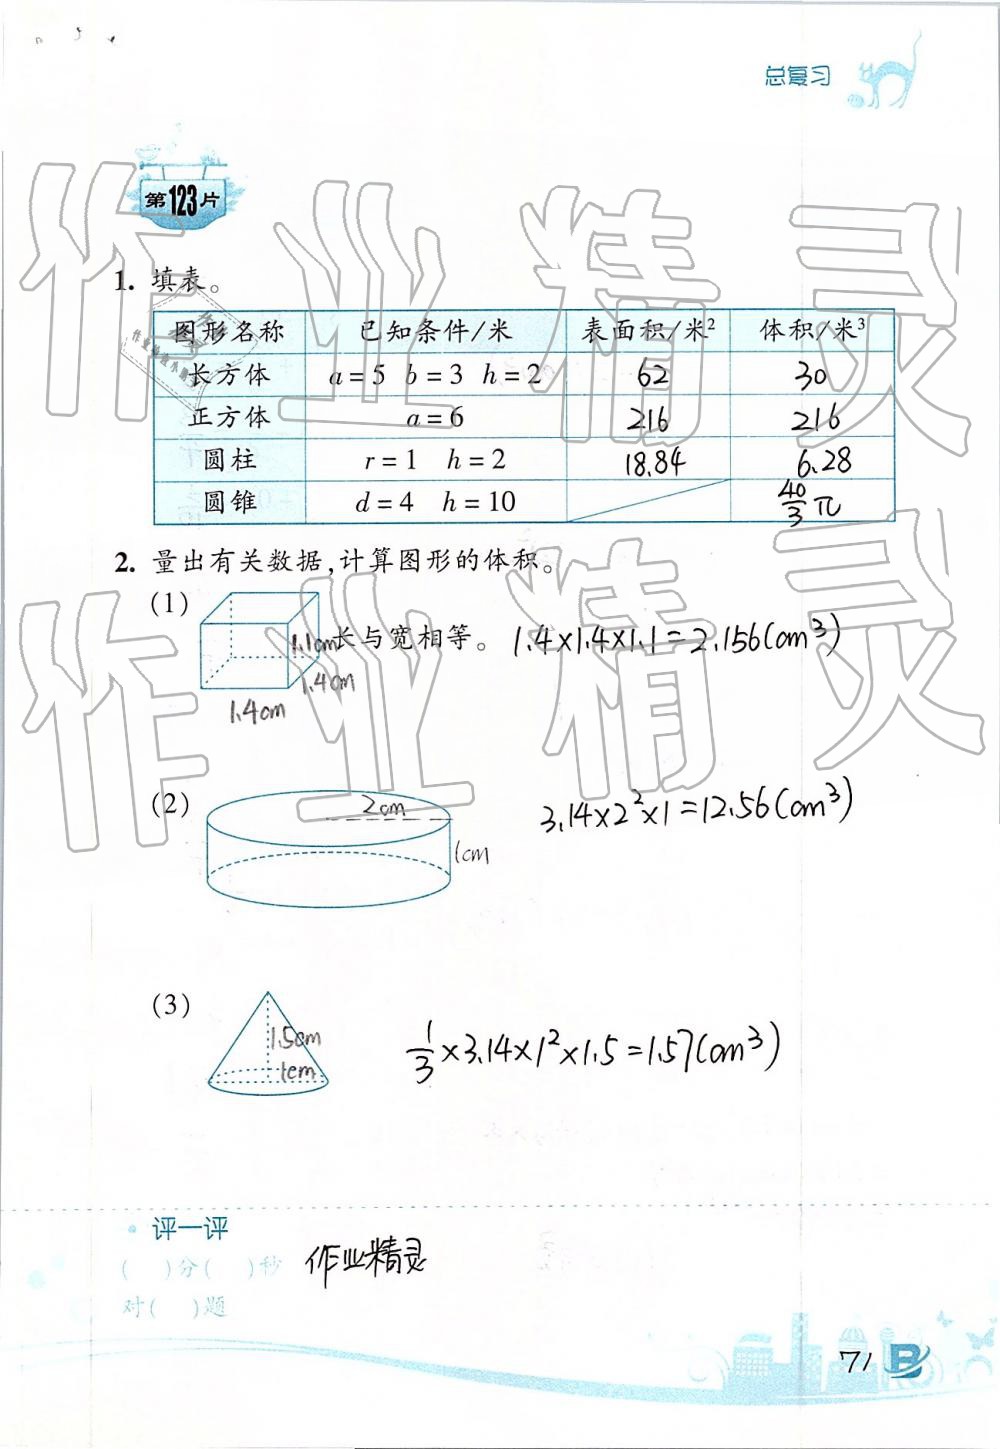 总复习
第123片
1. 填表。
图形名称 已知条件/米 表面积/米² 体积/米³
长方体 a=5 b=3 h=2 62 30
正方体 a=6 216 216
圆柱 r=1 h=2 18.84 6.28
圆锥 d=4 h=10 40/3 π
2. 量出有关数据,计算图形的体积。
(1) 1.1cm 长与宽相等。 1.4×1.4×1.1=2.156(cm³)
1.4cm
1.4cm
(2) 2cm 3.14×2²×1=12.56(cm³)
1cm
(3) 1.5cm 1/3×3.14×1²×1.5=1.57(cm³)
1cm
评一评
( )分( )秒 作业精灵
对( )题
71 B
作业精灵
作业精灵